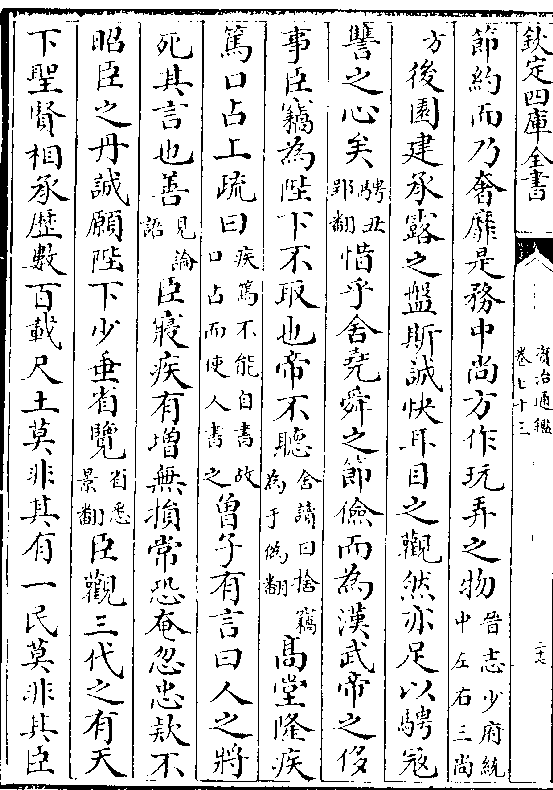 欽定四庫全書
資治通鑑
卷七十三
節約而乃奢靡是務中尚方作玩弄之物晉志少府統中左右三尚
方後園建承露之盤斯誠快耳目之觀然亦足以騁冦
讐之心矣騁丑郢翻惜乎舍堯舜之節儉而為漢武帝之侈
事臣竊為陛下不取也帝不聽舍讀曰捨竊為于偽翻高堂隆疾
篤口占上疏曰疾篤不能自書故口占而使人書之曾子有言曰人之將
死其言也善見論語臣寢疾有增無損常恐奄忽忠欵不
昭臣之丹誠願陛下少垂省覽省悉景翻臣觀三代之有天
下聖賢相承歴數百載尺土莫非其有一民莫非其臣